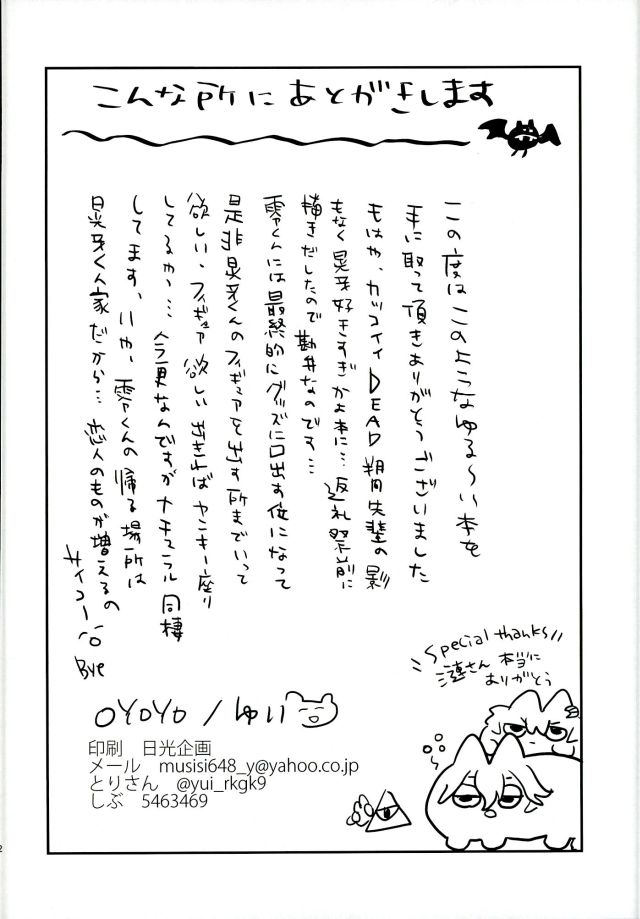 こんな所にあとがきします
この度はこのようなゆる〜い本を
手に取って頂きありがとうございました
もはや、カッコイイDEAD朔間先輩の影
もなく晃牙好きすぎかよ本に…返礼祭前に
描きだしたので勘弁なのです…
零くんには最終的にグッズに口出す位になって
是非晃牙くんのフィギュアを出す所までいって
欲しい、フィギュア欲しい 出きればヤンキー座り
してるやつ…今更なんですがナチュラル同棲
してます、いや、零くんの帰る場所は
晃牙くん家だから…恋人のものが増えるの
サイコー
Bye
Special thanks!!
さん 本当に
ありがとう
OYOYO / ゆい
印刷 日光企画
メール musisi648_y@yahoo.co.jp
とりさん @yui_rkgk9
しぶ 5463469
2